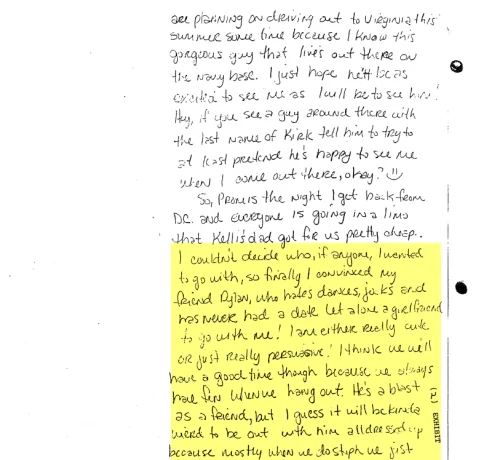 are planning on driving out to Virginia this
summer some time because I know this
gorgeous guy that live's out there on
the navy base. I just hope he'll be as
excited to see me as I will be to see him!
Hey, if you see a guy around there with
the last name of Kirk tell him to try to
at least pretend he's happy to see me
when I come out there, okay?
So, Prom is the night I get back from
D.C. and everyone is going in a limo
that Kelli's dad got for us pretty cheap.
I couldn't decide who, if anyone, I wanted
to go with, so finally I convinced my
friend Dylan, who hates dances, jocks and
has never had a date let alone a girlfriend
to go with me! I am either really cute
or just really persuasive! I think we will
have a good time though because we always
have fun when we hang out. He's a blast
as a friend, but I guess it will be kinda
weird to be out with him all dressed up
because mostly when we do stuph we just
EXHIBIT (2)